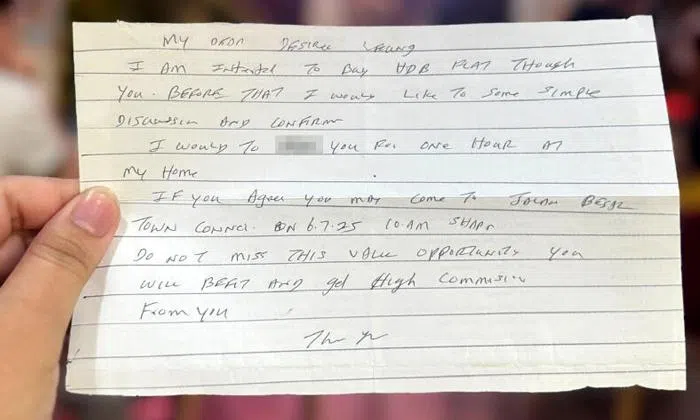 My DEAR DESIREE
I AM Intested To Buy HDB FLAT THough
you. BEFORE THAT I would LIKE To Some SIMPLE
DISCUSSION AND CONFIRM
I WOULD TO you For ONE HOUR AT
My Home
IF you Agree you may come To JALAN BESAR
TOWN COUNCI. ON 6.7.25 10.AM SHARP
DO NOT MISS THIS VALUE OPPORTUNITY you
WILL BEFIT AND get High Commision
From you